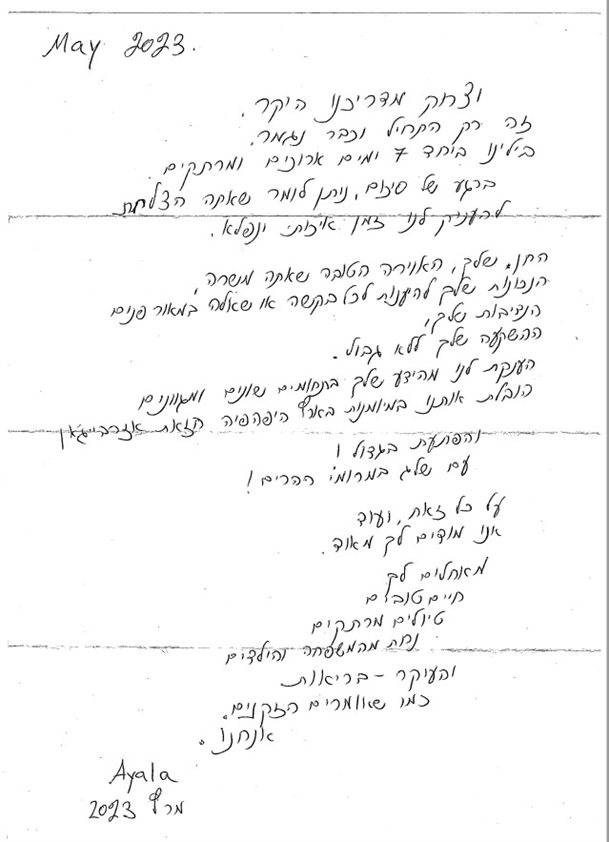 May 2023.
וצחוק מדריכנו היקר.
זה רק התחיל וכבר נגמר.
בילינו ביחד 7 ימים ארוכים ומרתקים.
ברגע של סיכום, ניתן לומר שאתה הצלחת
להעניק לנו זמן איכותי ונפלא.
החן שלך, האוירה הטובה שאתה משרה,
הנכונות שלך להיענות לכל בקשה או שאלה במאור פנים
הנדיבות שלך,
ההשקעה שלך ללא גבול.
הענקת לנו מהידע שלך בתחומים שונים ומגוונים
הובלת אותנו במיומנות בארץ היפהפיה הזאת אזרבייג'אן
והפתעת בגדול!
עם שלג במרומי ההרים!
על כל זאת, ועוד
אנו מודים לך מאוד.
מאחלים לך
חיים טובים
טיולים מרתקים
נחת מהמשפחה והילדים
והעיקר - בריאות
כמו שאומרים הזקנים.
אנחנו.
Ayala
מרץ 2023